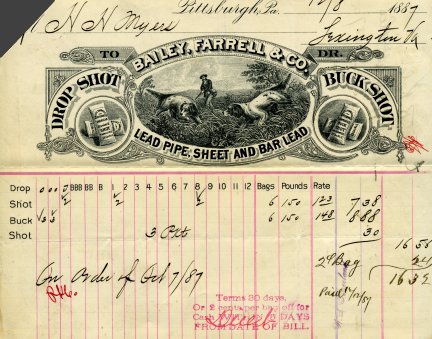 Pittsburgh, Pa. 10/8 1887
H H Myers
Lexington Va
TO BAILEY, FARRELL & CO. DR.
DROP SHOT
BUCK SHOT
LEAD PIPE, SHEET AND BAR LEAD
Drop 0 00 BBB BB B 1 2 3 4 5 6 7 8 9 10 11 12 Bags Pounds Rate
Shot 2 2 2 6 150 123 7 38
Buck 3 3 6 150 148 8 88
Shot 3 Pkts 30
16 56
2¢ Bag 24
16 32
On Order of Oct 7/87
Terms 30 days.
Or 2 cents per bag off for
Cash WITHIN 5 DAYS
FROM DATE OF BILL.